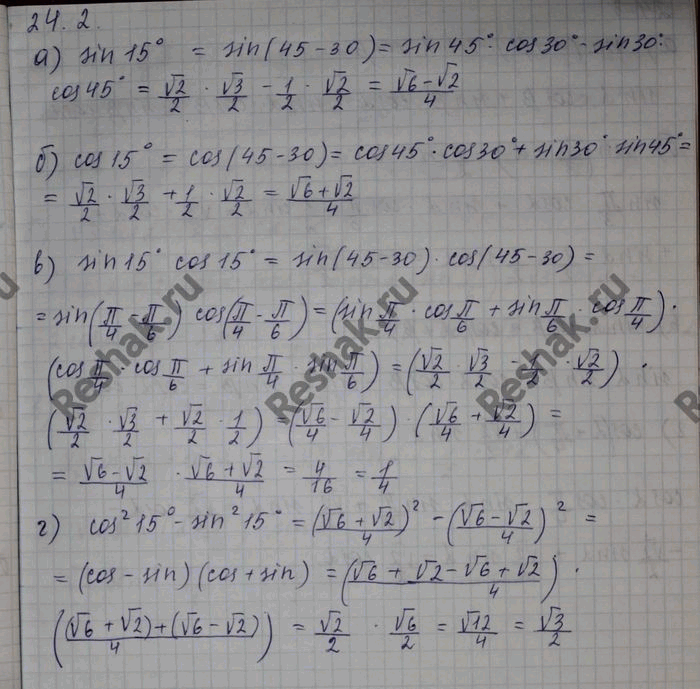 24. 2.
а) sin 15° = sin(45-30) = sin 45° · cos 30° - sin 30° ·
cos 45° = √2/2 · √3/2 - 1/2 · √2/2 = (√6-√2)/4
б) cos 15° = cos(45-30) = cos 45° · cos 30° + sin 30° · sin 45° =
= √2/2 · √3/2 + 1/2 · √2/2 = (√6+√2)/4
в) sin 15° cos 15° = sin(45-30) · cos(45-30) =
= sin(π/4 - π/6) cos(π/4 - π/6) = (sin π/4 · cos π/6 + sin π/6 · cos π/4) ·
(cos π/4 · cos π/6 + sin π/4 · sin π/6) = (√2/2 · √3/2 - 1/2 · √2/2) ·
(√2/2 · √3/2 + √2/2 · 1/2) = (√6/4 - √2/4) · (√6/4 + √2/4) =
= (√6-√2)/4 · (√6+√2)/4 = 4/16 = 1/4
г) cos² 15° - sin² 15° = ((√6+√2)/4)² - ((√6-√2)/4)² =
= (cos - sin)(cos + sin) = ((√6 + √2 - √6 + √2)/4) ·
(((√6+√2)+(√6-√2))/4) = √2/2 · √6/2 = √12/4 = √3/2
Reshak.ru
Reshak.ru